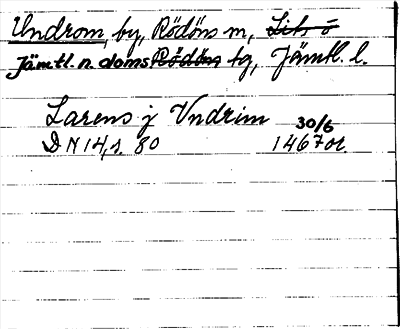 Undrom, by, Rödöns sn, Lits o
Jämtl. n. doms Rödöns tg, Jämtl. l.
Larens j Vndrim 30/6
DN 14, s. 80 1467 or.